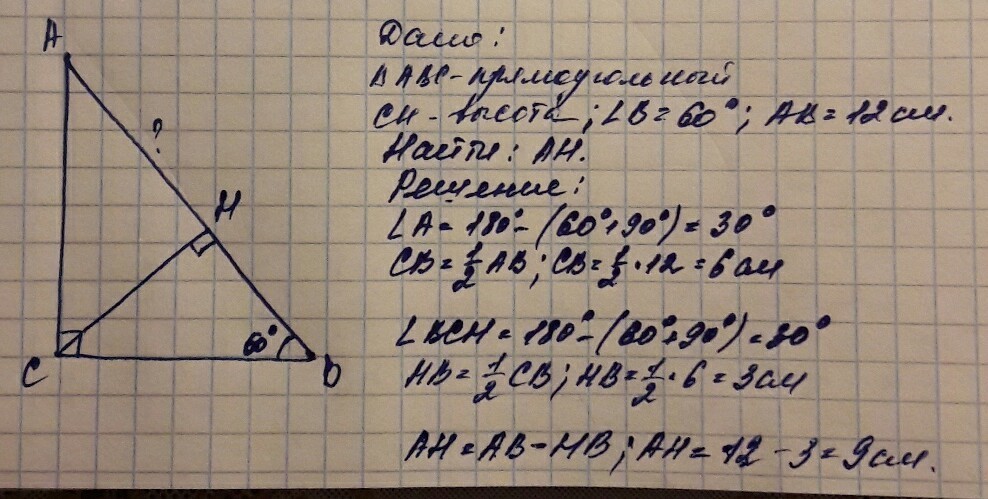 A
?
H
C
60°
B
Дано:
ΔABC - прямоугольный
CH - высота; ∠B = 60°; AB = 12 см.
Найти: AH.
Решение:
∠A = 180° - (60° + 90°) = 30°
CB = 1/2 AB; CB = 1/2 · 12 = 6 см
∠BCH = 180° - (60° + 90°) = 30°
HB = 1/2 CB; HB = 1/2 · 6 = 3 см
AH = AB - HB; AH = 12 - 3 = 9 см.